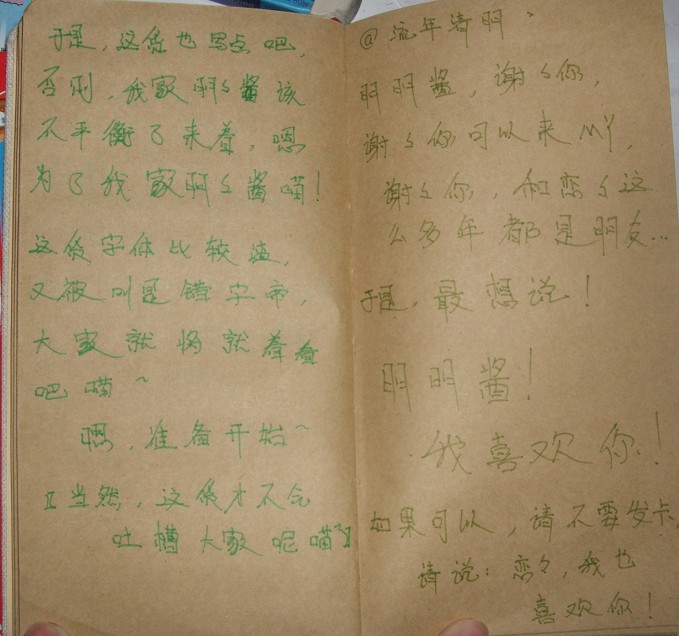 于是，这货也写点吧，
否则，我家明々酱该
不平衡了来着，嗯
为了我家明々酱喵！
这货字体比较渣，
又被叫是错字帝，
大家就将就着看
吧喵~
嗯，准备开始~
【当然，这货才不会
吐槽大家呢喵~】
@流年清明、
明明酱，谢々你，
谢々你可以来YY，
谢々你，和恋々这
么多年都是朋友…
于是，最想说！
明明酱！
我喜欢你！
如果可以，请不要发卡，
请说：恋々，我也
喜欢你！